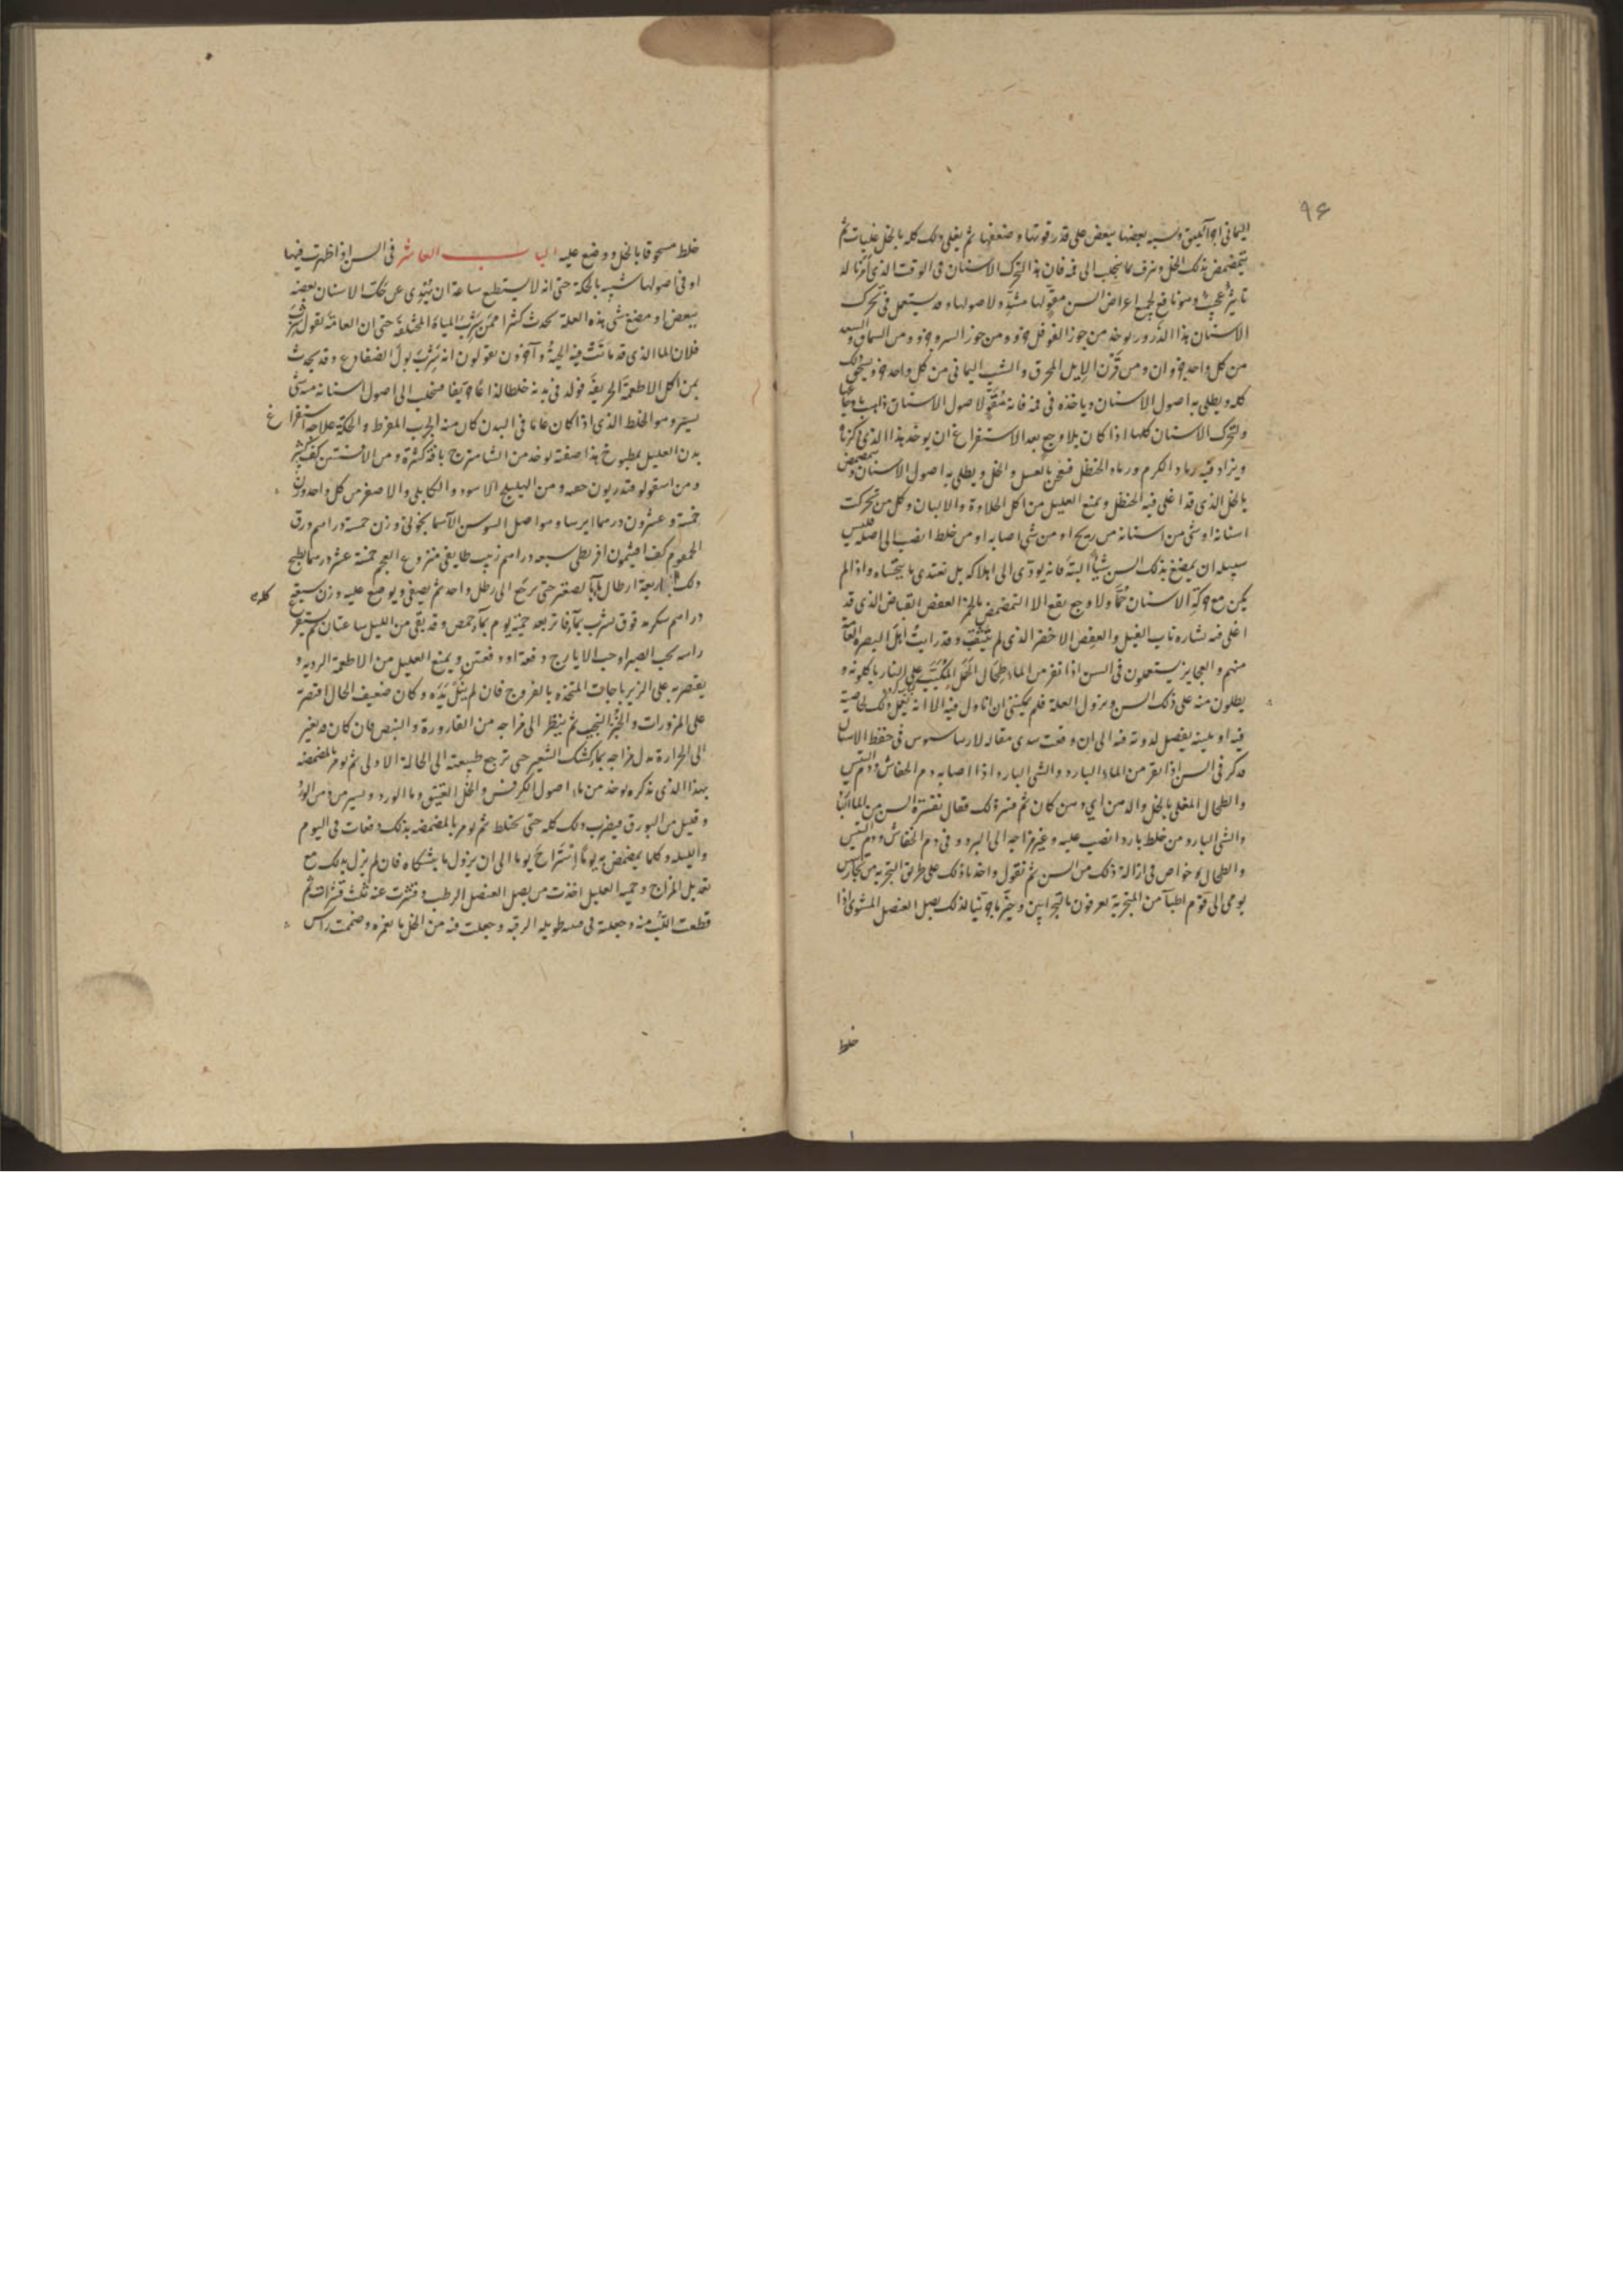 ٩٤
اليماني اجزا وينسب بعضها ببعض على قدر قوتها وضعفها ثم يغلى ذلك كله بالخل غليات ثم
يتمضمض بذلك الخل ويبزق ما ينجلب الى فمه فان هذا التحرك الاسنان في الوقت الذي امرنا له
تاثير عجيب وهو نافع لجميع اعراض السن مقو لها مشد ولاصولها وقد يستعمل في تحرك
الاسنان هذا الذرور يوخذ من جوز الفوفل جزو ومن جوز السرو جزو ومن السماق والسعد
من كل واحد جزوان ومن قرن الايل المحرق والشب اليماني من كل واحد جزو ويسحق ذلك
كله ويطلى به اصول الاسنان وياخذه في فمه فانه مقو لاصول الاسنان ذاهب
ولتحرك الاسنان كلها اذا كان بلا وجع بعد الاستفراغ ان يوخذ هذا الذي ذكرناه
ويزاد فيه رماد الكرم ورماد الحنظل فيعجن بالعسل والخل ويطلى به اصول الاسنان ويتمضمض
بالخل الذي قد اغلى فيه الحنظل ويمنع العليل من اكل الحلاوة والالبان وكل من تحركت
اسنانه او شي من اسنانه من ريح او من شي اصابه او من خلط انصب الى اصله فليس
سبيله ان يمضغ بذلك السن شيأ البتة فانه يودى الى اهلاكه بل يغتدى بما يتحساه واذا لم
يكن مع حركة الاسنان حمى ولا وجع يقع الا التمضمض بالخمر العفص القباض الذي قد
اغلى فيه نشاره ناب الفيل والعفص الاخضر الذي لم يثقب وقد رايت اهل البصره العامة
منهم والعجايز يستعملون في السن اذا نفر من الماء طحال المكبب على النار ياكلونه و
يطلون منه على ذلك السن ويزول العلة فلم يمكنني ان اتاول فيه الا انه يفعل ذلك لخاصية
فيه او يلينه بفضل لدونه فيه الى ان وقعت بيدى مقاله لارساسيوس في حفظ الاسنان
فذكر في السن اذا نفر من الماء البارد والشي البارد اذا اصابه دم الخفاش ودم التيس
والطحال المغلى بالخل والدهن اي دهن كان ثم فسر ذلك فقال نفرة السن من الماء البارد
والشي البارد من خلط بارد انصب عليه وغير مزاجه الى البرد وفي دم الخفاش ودم التيس
والطحال خواص في ازالة ذلك من السن ثم نقول واخذنا ذلك على طريق التجربه من
يومى الى قوم اطبآ من المتجربة يعرفون بالتجرابين وخير ما جربنا لذلك بصل العنصل المشوى اذا
خلط
خلط مسحوقا بالخل ووضع عليه الباب العاشر في السن اذا ظهرت فيها
او في اصولها شبيه بالحكة حتى انه لا يستطيع ساعة ان يهدى عن حك الاسنان بعضه
ببعض او مضغ شي هذه العلة تحدث كثيرا ممن شرب المياه المختلفة حتى ان العامة تقول شرب
فلان الماء الذي قد ماتت فيه الحية وآخرون يقولون انه شرب بول الضفادع وقد يحدث
بمن اكل الاطعمة الحريفة فولد في بدنه خلطا لذاعا حريفا فينجلب الى اصول اسنانه منه شى
يسير وهو الخلط الذي اذا كان عاما في البدن كان منه الجرب المفرط والحكة علاجه استفراغ
بدن العليل بمطبوخ هذا صفته يوخذ من الشاهترج باقة كبيرة ومن الافسنتين كف كبير
ومن اسقولوقندريون حصه ومن الهليلج الاسود والكابلى والاصفر من كل واحد وزن
خمسة وعشرون درهما ايرسا وهو اصل السوسن الاسمانجونى وزن خمسة دراهم ورق
كف افيثمون اقريطى سبعه دراهم زبيب طايفى منزوع العجم خمسة عشر درهما يطبخ
ذلك كله باربعة ارطال مآ بالصغير حتى يرجع الى رطل واحد ثم يصفى ويوضع عليه وزن سبعة
دراهم سكر مدقوق يشرب بمآ فاتر بعد حمية يوم بمآ حمص وقد بقى من الليل ساعتان ثم يستفرغ
راسه بحب الصبر او حب الايارج دفعة او دفعتين ويمنع العليل من الاطعمة الرديه و
يقتصر به على الزيرباجات المتخذه بالفروج فان لم ينل يده وكان ضعيف الحال اقتصر
على المزورات والخبز النجيب ثم ينظر الى مزاجه من القارورة والنبض فان كان قد تغير
الى الحرارة بدل مزاجه بماء كشك الشعير حتى ترجع طبيعته الى الحالة الاولى ثم يومر بالمضمضه
بهذا الذي نذكره يوخذ من ماء اصول الكرفس والخل العتيق وماء الورد ويسير من دهن الورد
وقليل من البورق فيضرب ذلك كله حتى يختلط ثم يومر بالمضمضه بذلك دفعات في اليوم
والليله وكلما تمضمض به يوما استراح يوما الى ان يزول ما يشكاه فان لم يزل بذلك مع
تعديل المزاج وحمية العليل اخذت من بصل العنصل الرطب وقشرت عنه ثلث قشرات ثم
قطعت اللب منه وجعلته في قنينه طويله الرقبه وجعلت فيه من الخل ما يغمره وضممت راس